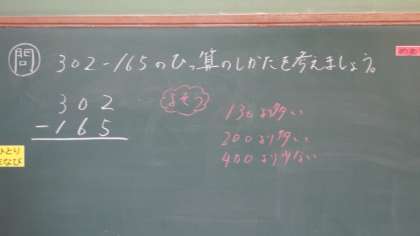 問 302-165のひっ算のしかたを考えましょう。
302
-165
よそう
130より多い
200より多い
400より少ない
ひとり
まなび